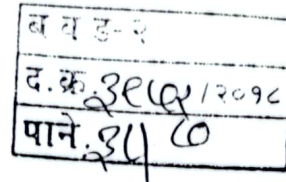 ब व ड-२
द. क्र. ३९७५/२०१८
पाने. ३५ ८०